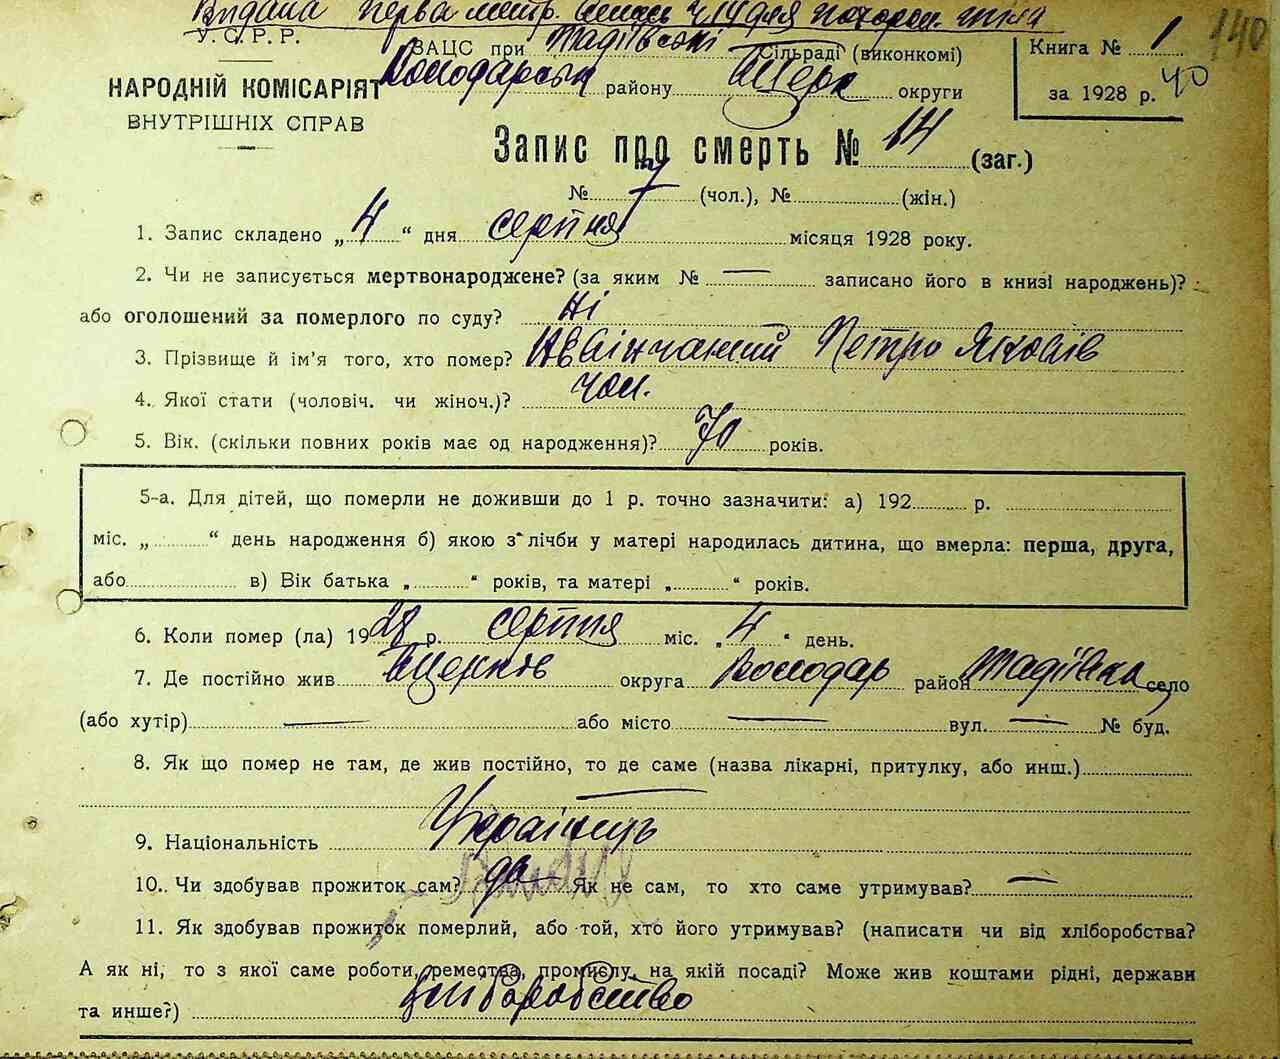 Видана перва метр. виписка ч 14 для похорон. тіла
140
У. С. Р. Р.
НАРОДНІЙ КОМІСАРІЯТ
ВНУТРІШНІХ СПРАВ
ЗАЦС при Тадіївській Сільраді (виконкомі)
Володарськ району БЦерк округи
Книга № 1
за 1928 р. 40
Запис про смерть № 14 (заг.)
№ 7 (чол.), № (жін.)
1. Запис складено „ 4 “ дня серпня місяця 1928 року.
2. Чи не записується мертвонароджене? (за яким № — записано його в книзі народжень)?
або оголошений за померлого по суду? Ні
3. Прізвище й ім'я того, хто помер? Петро Яковлів
4. Якої стати (чоловіч. чи жіноч.)? чол.
5. Вік. (скільки повних років має од народження)? 70 років.
5-а. Для дітей, що померли не доживши до 1 р. точно зазначити: а) 192 р.
міс. „ “ день народження б) якою з лічби у матері народилась дитина, що вмерла: перша, друга,
або в) Вік батька „ “ років, та матері „ “ років.
6. Коли помер (ла) 1928 р. серпня міс. „ 4 “ день.
7. Де постійно жив БЦерків округа Володар район Тадіївка село
(або хутір) — або місто — вул. — № буд.
8. Як що помер не там, де жив постійно, то де саме (назва лікарні, притулку, або инш.)
—
9. Національність Українець
10. Чи здобував прожиток сам? да Як не сам, то хто саме утримував? —
11. Як здобував прожиток померлий, або той, хто його утримував? (написати чи від хліборобства?
А як ні, то з якої саме роботи, ремества, промислу, на якій посаді? Може жив коштами рідні, держави
та инше?) хліборобство